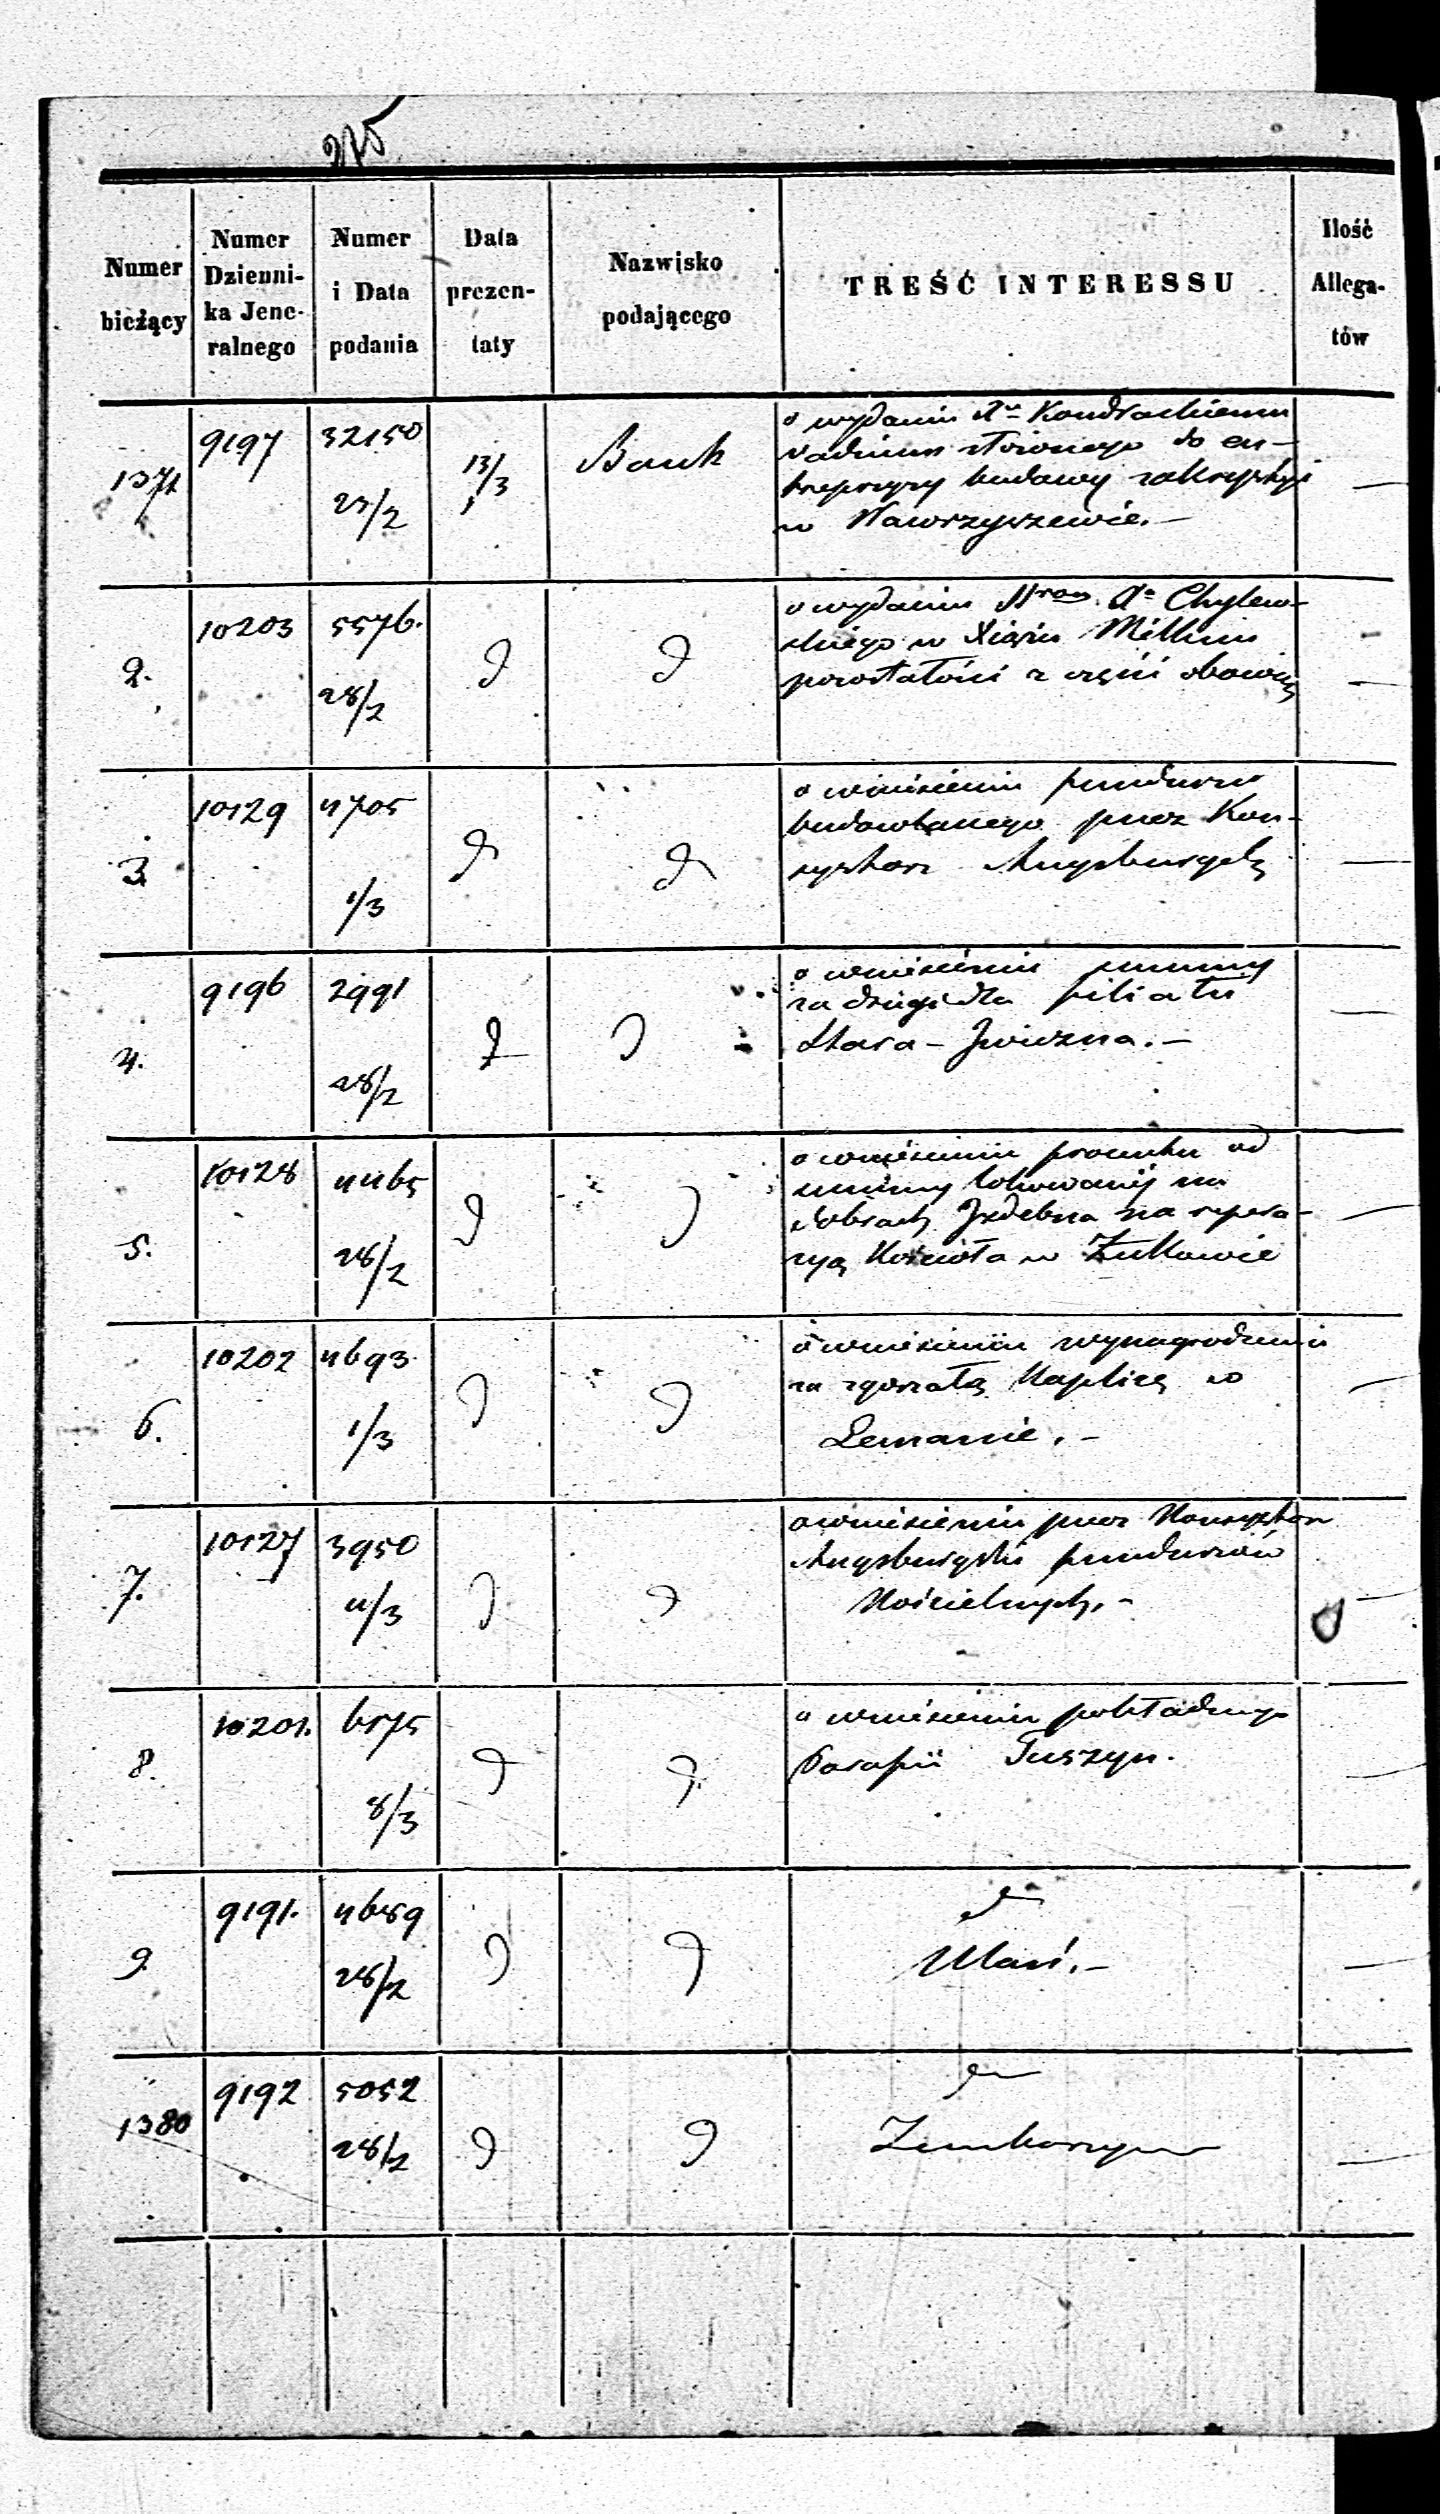 275
Numer bieżący
Numer Dzienni-ka Jene-ralnego
Numer i Data podania
Data prezen-taty
Nazwisko podającego
TREŚĆ INTERESSU
Ilość Allega-tów
1371 9197 32150 23/2 13/3 Bank
o wydaniu Kondrackiemu
vadium złożonego do en-
trepryzy budowy zakrystyi
w Wawrzyszewie. —
2. 10203 5576. 28/2
o wydaniu Chylew-
skiego w
pozostałości z części
3 10129 4705 1/3
o wniesieniu funduszu
budowlanego przez Kon-
systorz Augsburgski
4. 9196 2991 28/2
o wniesieniu summy
filiału
Stara – Iwiczna. —
5. 10128 4465 28/2
o wniesieniu procentu od
summy lokowanej na
dobrach Izdebna na repera-
cyą Kościoła w Żukowie
6. 10202 4693 1/3
o wniesieniu wynagrodzenia
za zgorzałą Kaplicę w
Lemanie. —
7. 10127 3950 4/3
o wniesieniu przez Konsystorz
Augsburgski funduszów
Kościelnych. —
8. 10201. 6575 8/3
o wniesieniu pokładnego
Parafii Tuszyn.
9 9191. 4689 28/2
Ulan. —
1380 9192 5052 28/2
Zemborzyn